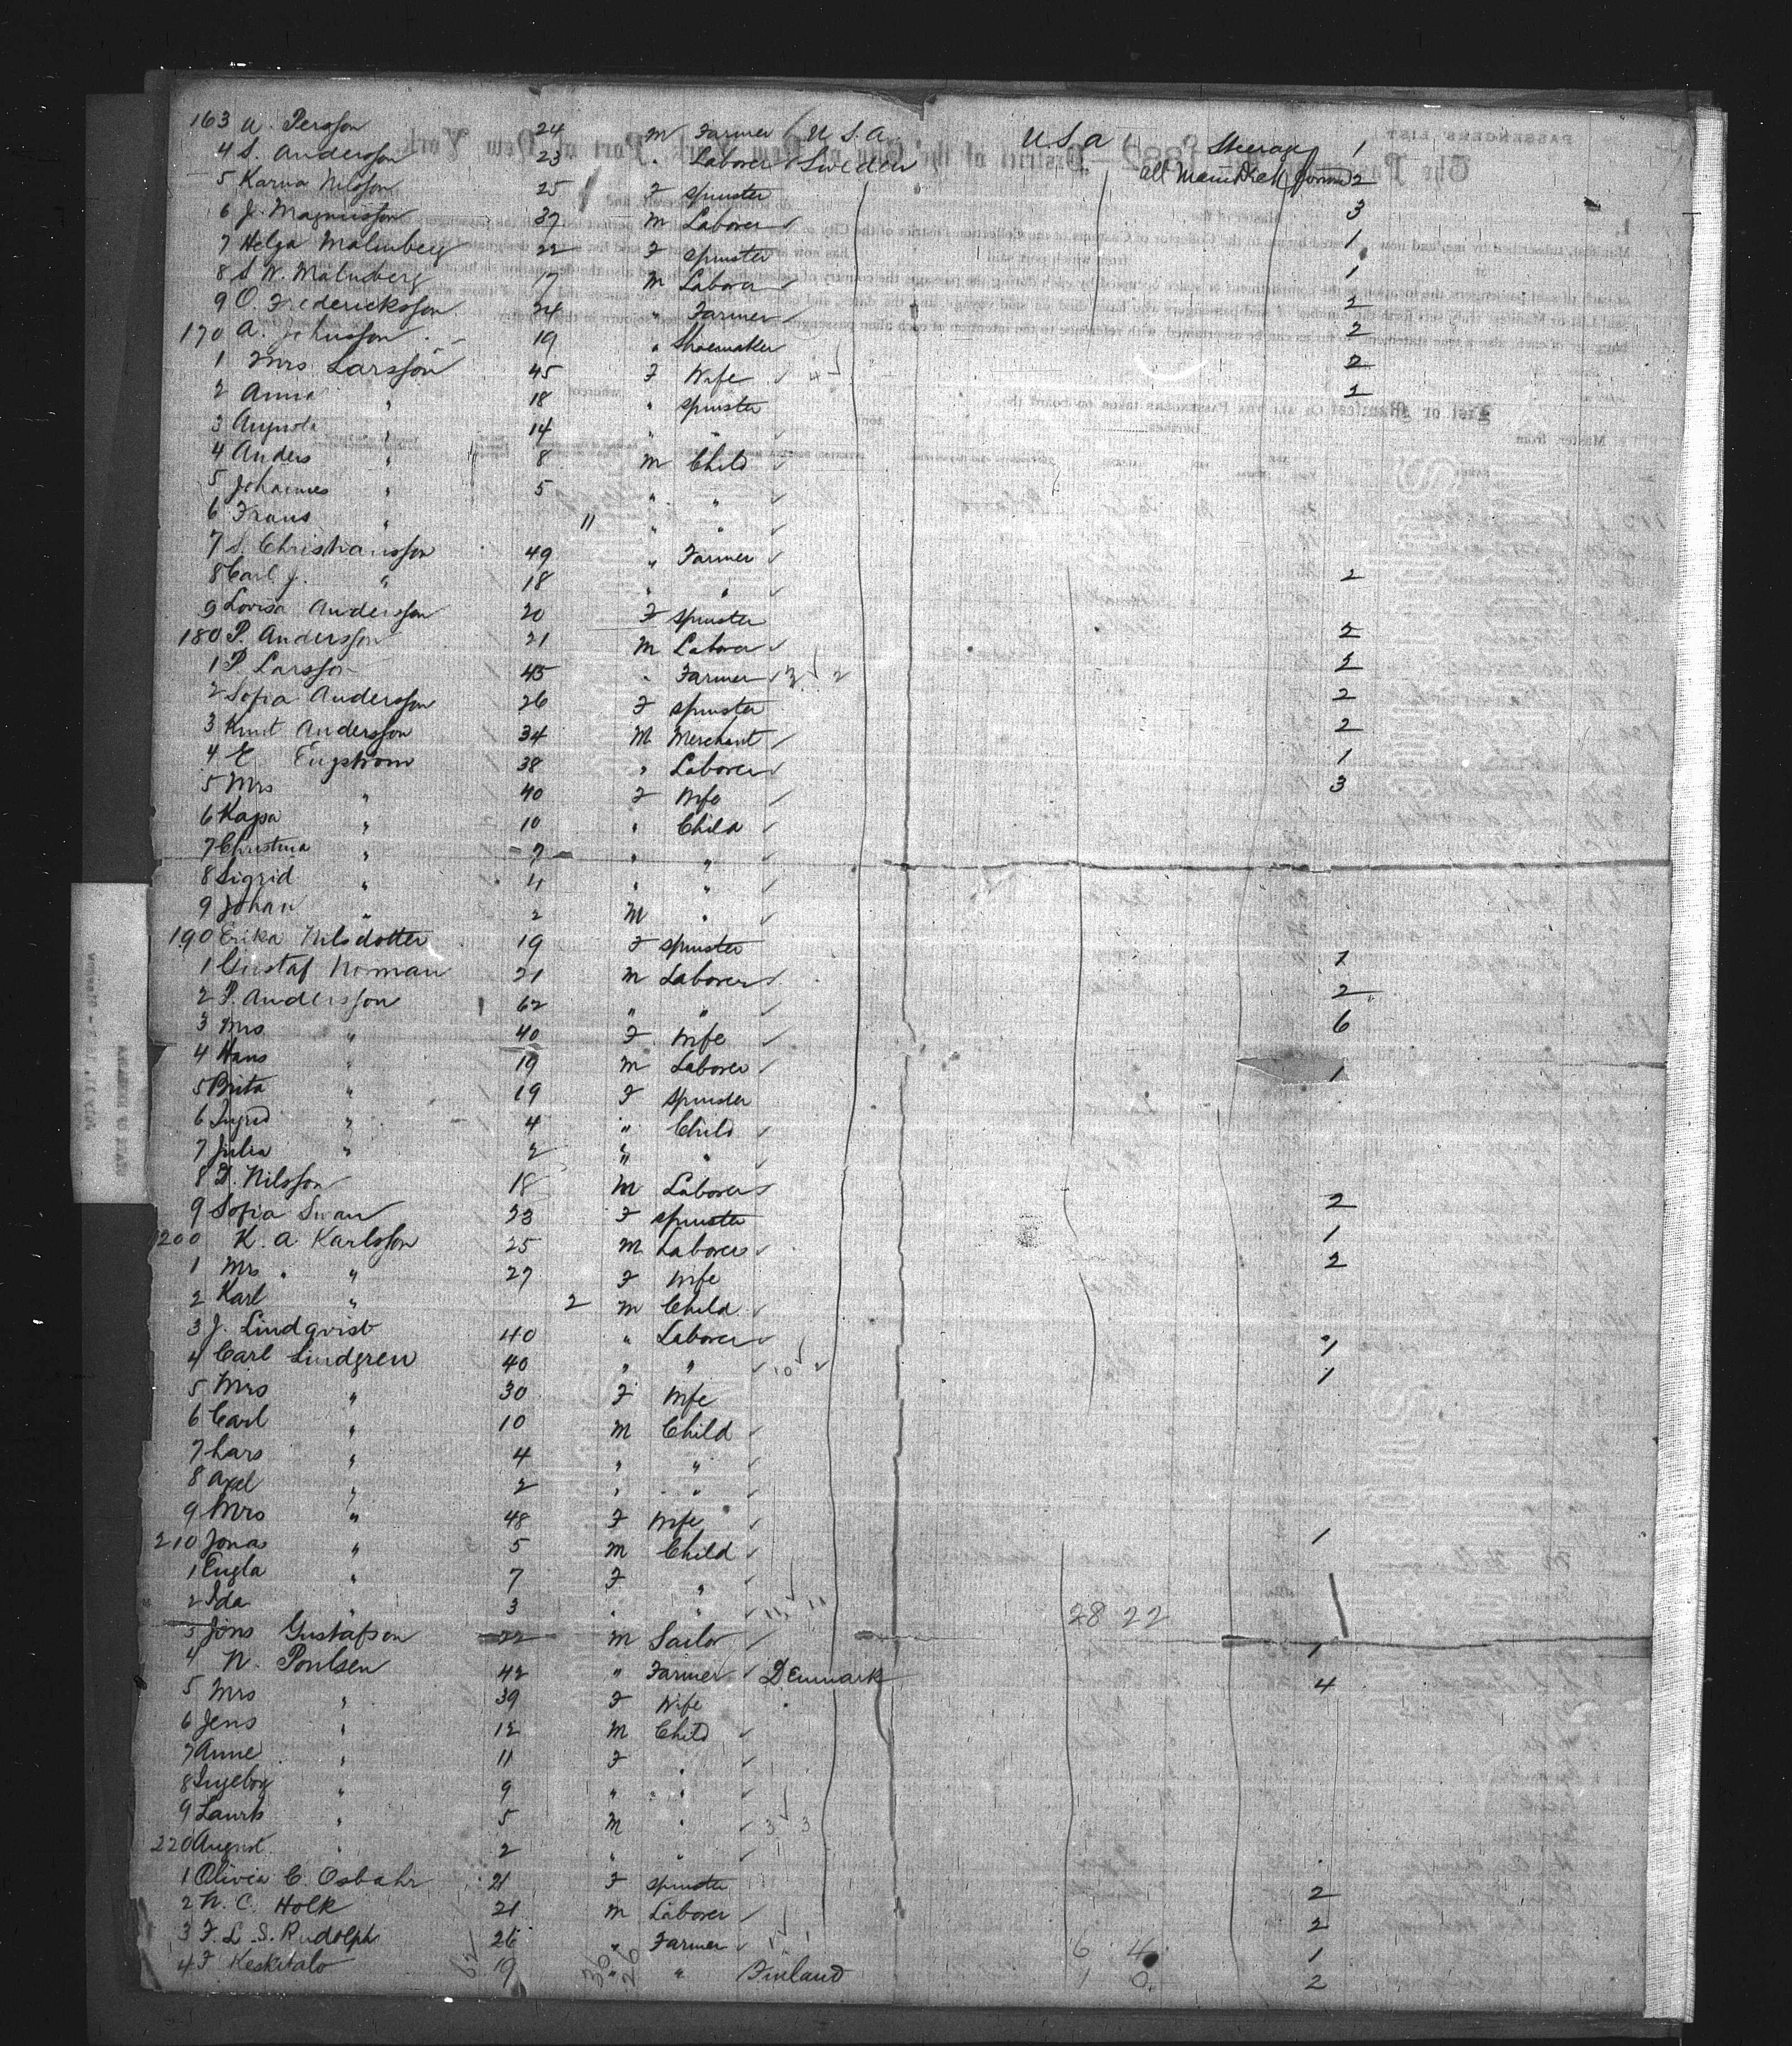 163 A. Persson 24 M Farmer U.S.A. U.S.A Steerage 1
4 S. Andersson 23 " Laborer Sweden all Main Deck 2
5 Karna Nilsson 25 F Spinster 3
6 J. Magnusson 37 M Laborer 1
7 Helga Malmberg 22 F Spinster 1
8 S. W. Malmberg 17 M Laborer 2
9 O. Fredericksson 24 " Farmer 2
170 A. Johnsson 19 " Shoemaker 2
1 Mrs Larsson 45 F Wife 2
2 Anna " 18 " Spinster
3 Augusta " 14 " "
4 Anders " 8 M Child
5 Johannes " 5 " "
6 Frans " 11 " "
7 S. Christiansson 49 " Farmer
8 Carl J. " 18 " " 2
9 Lovisa Andersson 20 F Spinster
180 P. Andersson 21 M Laborer 2
1 P Larsson 45 " Farmer 2
2 Sofia Andersson 26 F Spinster 2
3 Knut Andersson 34 M Merchant 2
4 E Engstrom 38 " Laborer 1
5 Mrs " 40 F Wife 3
6 Kajsa " 10 " Child
7 Christina " 7 " "
8 Sigrid " 4 " "
9 Johan " 2 M "
190 Erika Nilsdotter 19 F Spinster 1
1 Gustaf Norman 21 M Laborer 2
2 P. Andersson 62 " " 6
3 Mrs " 40 F Wife
4 Hans " 19 M Laborer 1
5 Brita " 19 F Spinster
6 Ingrid " 4 " Child
7 Julia " 2 " "
8 D. Nilsson 18 M Laborer 2
9 Sofia Swan 23 F Spinster 1
200 K. A Karlsson 25 M Laborer 2
1 Mrs " 27 F Wife
2 Karl " 2 M Child
3 J. Lindqvist 40 " Laborer 1
4 Carl Lindgren 40 " " 10 1
5 Mrs " 30 F Wife
6 Carl " 10 M Child
7 Lars " 4 " "
8 Axel " 2 " "
9 Mrs " 48 F Wife 1
210 Jonas " 5 M Child
1 Engla " 7 F "
2 Ida " 3 " " 11 11 28 22
3 Jöns Gustafson 22 M Sailor 1
4 N. Poulsen 42 " Farmer Denmark 4
5 Mrs " 39 F Wife
6 Jens " 12 M Child
7 Anne " 11 F "
8 Ingeborg " 9 " "
9 Laurts " 5 M " 3 3
220 August " 2 " "
1 Olivia C. Osbahr 21 F Spinster 2
2 N. C. Holk 21 M Laborer 2
3 F. L. S. Rudolph 26 " Farmer 1 1 6 4 1
4 F Keskitalo 19 " " Finland 1 0 2
36 26